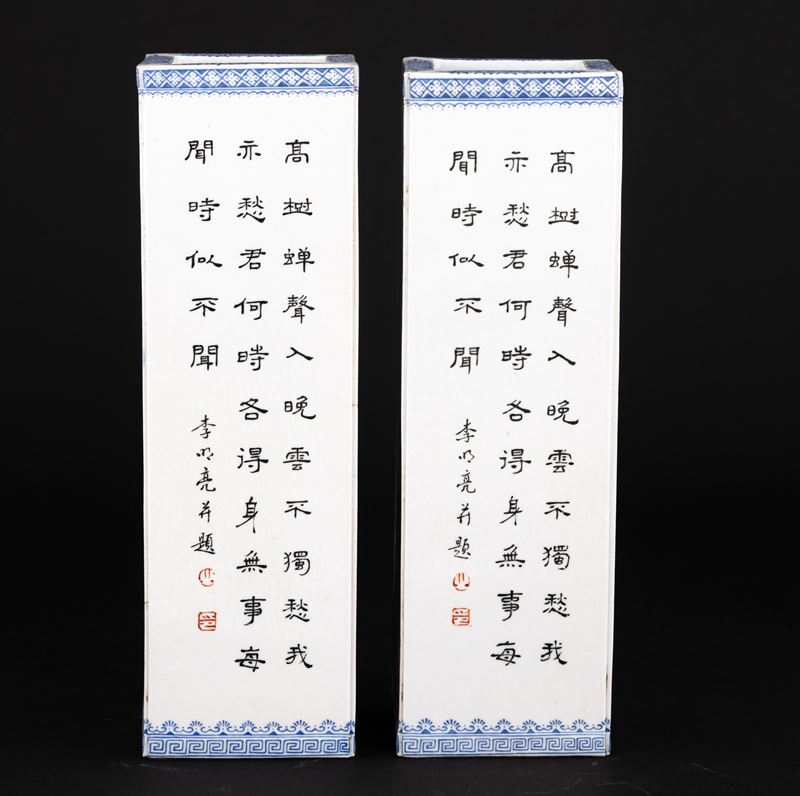 高樹蟬聲入晚雲不獨愁我
亦愁君何時各得身無事每
聞時似不聞
李明亮并題
高樹蟬聲入晚雲不獨愁我
亦愁君何時各得身無事每
聞時似不聞
李明亮并題